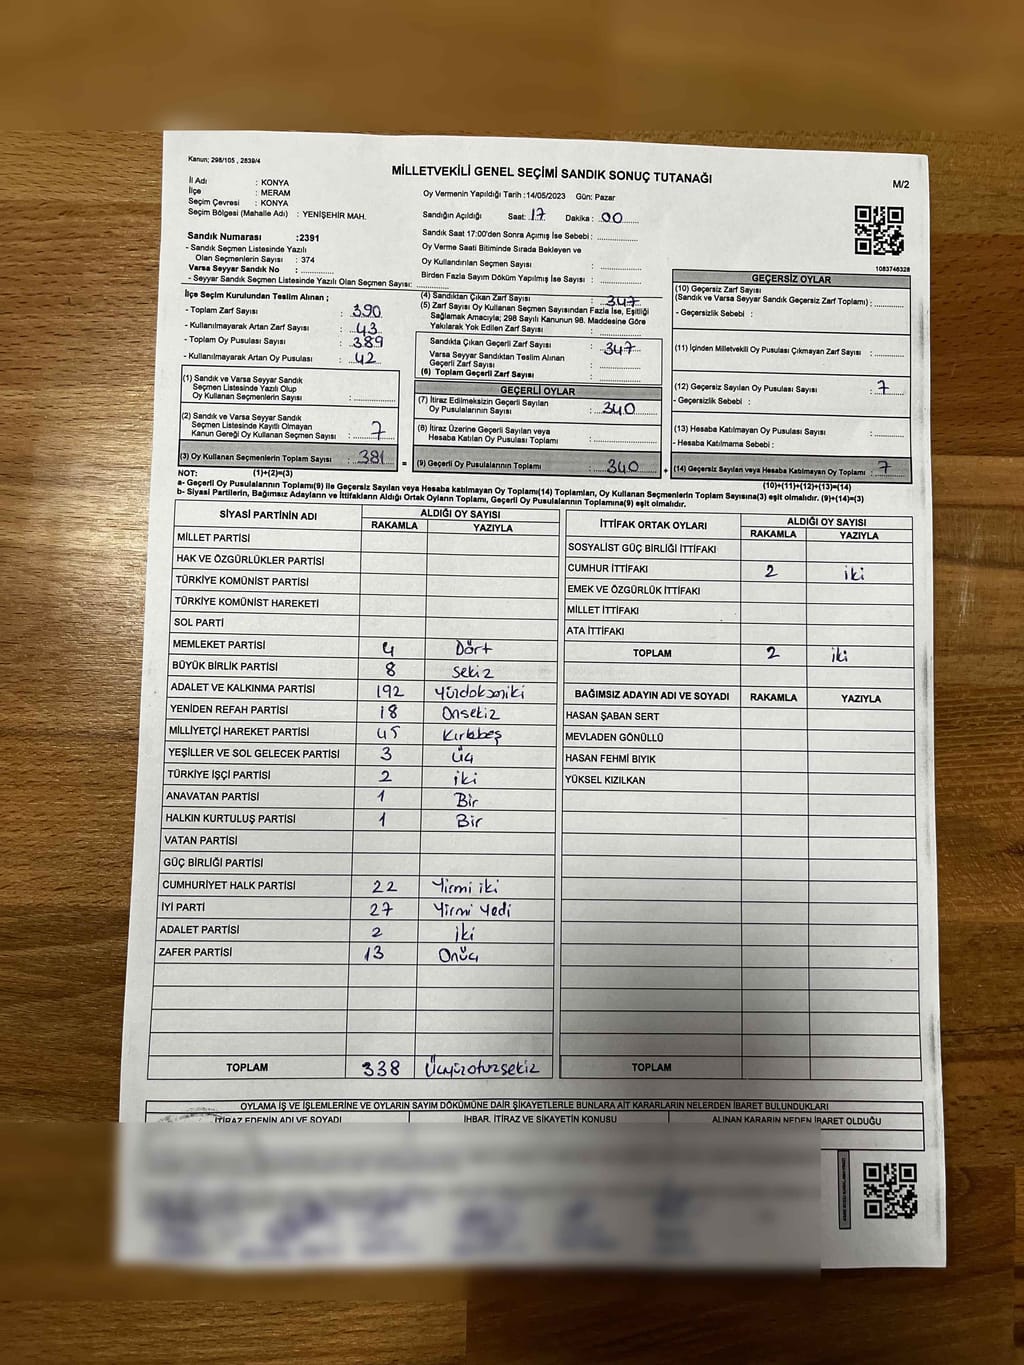 Kanun; 298/105 , 2839/4
MİLLETVEKİLİ GENEL SEÇİMİ SANDIK SONUÇ TUTANAĞI
M/2
İl Adı : KONYA
İlçe : MERAM
Seçim Çevresi : KONYA
Seçim Bölgesi (Mahalle Adı) : YENİŞEHİR MAH.
Oy Vermenin Yapıldığı Tarih :14/05/2023 Gün: Pazar
Sandığın Açıldığı Saat: 17 Dakika : 00
Sandık Saat 17:00'den Sonra Açımış İse Sebebi :
Oy Verme Saati Bitiminde Sırada Bekleyen ve
Oy Kullandırılan Seçmen Sayısı :
Birden Fazla Sayım Döküm Yapılmış İse Sayısı :
Sandık Numarası :2391
- Sandık Seçmen Listesinde Yazılı
Olan Seçmenlerin Sayısı : 374
Varsa Seyyar Sandık No :
- Seyyar Sandık Seçmen Listesinde Yazılı Olan Seçmen Sayısı:
1083746328
İlçe Seçim Kurulundan Teslim Alınan ;
- Toplam Zarf Sayısı : 390
- Kullanılmayarak Artan Zarf Sayısı : 43
- Toplam Oy Pusulası Sayısı : 389
- Kullanılmayarak Artan Oy Pusulası : 42
(1) Sandık ve Varsa Seyyar Sandık
Seçmen Listesinde Yazılı Olup
Oy Kullanan Seçmenlerin Sayısı :
(2) Sandık ve Varsa Seyyar Sandık
Seçmen Listesinde Kayıtlı Olmayan
Kanun Gereği Oy Kullanan Seçmen Sayısı : 7
(3) Oy Kullanan Seçmenlerin Toplam Sayısı : 381
(4) Sandıktan Çıkan Zarf Sayısı : 347
(5) Zarf Sayısı Oy Kullanan Seçmen Sayısından Fazla İse, Eşitliği
Sağlamak Amacıyla; 298 Sayılı Kanunun 98. Maddesine Göre
Yakılarak Yok Edilen Zarf Sayısı :
Sandıkta Çıkan Geçerli Zarf Sayısı : 347
Varsa Seyyar Sandıktan Teslim Alınan
Geçerli Zarf Sayısı :
(6) Toplam Geçerli Zarf Sayısı :
GEÇERLİ OYLAR
(7) İtiraz Edilmeksizin Geçerli Sayılan
Oy Pusulalarının Sayısı : 340
(8) İtiraz Üzerine Geçerli Sayılan veya
Hesaba Katılan Oy Pusulası Toplamı :
= (9) Geçerli Oy Pusulalarının Toplamı : 340 +
GEÇERSİZ OYLAR
(10) Geçersiz Zarf Sayısı
(Sandık ve Varsa Seyyar Sandık Geçersiz Zarf Toplamı) :
- Geçersizlik Sebebi :
(11) İçinden Milletvekili Oy Pusulası Çıkmayan Zarf Sayısı :
(12) Geçersiz Sayılan Oy Pusulası Sayısı : 7
- Geçersizlik Sebebi :
(13) Hesaba Katılmayan Oy Pusulası Sayısı :
- Hesaba Katılmama Sebebi :
(14) Geçersiz Sayılan veya Hesaba Katılmayan Oy Toplamı : 7
NOT: (1)+(2)=(3) (10)+(11)+(12)+(13)=(14)
a- Geçerli Oy Pusulalarının Toplamı(9) ile Geçersiz Sayılan veya Hesaba katılmayan Oy Toplamı(14) Toplamları, Oy Kullanan Seçmenlerin Toplam Sayısına(3) eşit olmalıdır. (9)+(14)=(3)
b- Siyasi Partilerin, Bağımsız Adayların ve İttifakların Aldığı Ortak Oyların Toplamı, Geçerli Oy Pusulalarının Toplamına(9) eşit olmalıdır.
SİYASİ PARTİNİN ADI ALDIĞI OY SAYISI
RAKAMLA YAZIYLA
MİLLET PARTİSİ
HAK VE ÖZGÜRLÜKLER PARTİSİ
TÜRKİYE KOMÜNİST PARTİSİ
TÜRKİYE KOMÜNİST HAREKETİ
SOL PARTİ
MEMLEKET PARTİSİ 4 Dört
BÜYÜK BİRLİK PARTİSİ 8 Sekiz
ADALET VE KALKINMA PARTİSİ 192 Yüzdoksaniki
YENİDEN REFAH PARTİSİ 18 Onsekiz
MİLLİYETÇİ HAREKET PARTİSİ 45 Kırkbeş
YEŞİLLER VE SOL GELECEK PARTİSİ 3 Üç
TÜRKİYE İŞÇİ PARTİSİ 2 iki
ANAVATAN PARTİSİ 1 Bir
HALKIN KURTULUŞ PARTİSİ 1 Bir
VATAN PARTİSİ
GÜÇ BİRLİĞİ PARTİSİ
CUMHURİYET HALK PARTİSİ 22 Yirmi iki
İYİ PARTİ 27 Yirmi Yedi
ADALET PARTİSİ 2 İki
ZAFER PARTİSİ 13 Onüç
TOPLAM 338 Üçyüzotuzsekiz
İTTİFAK ORTAK OYLARI ALDIĞI OY SAYISI
RAKAMLA YAZIYLA
SOSYALİST GÜÇ BİRLİĞİ İTTİFAKI
CUMHUR İTTİFAKI 2 iki
EMEK VE ÖZGÜRLÜK İTTİFAKI
MİLLET İTTİFAKI
ATA İTTİFAKI
TOPLAM 2 iki
BAĞIMSIZ ADAYIN ADI VE SOYADI RAKAMLA YAZIYLA
HASAN ŞABAN SERT
MEVLADEN GÖNÜLLÜ
HASAN FEHMİ BIYIK
YÜKSEL KIZILKAN
TOPLAM
OYLAMA İŞ VE İŞLEMLERİNE VE OYLARIN SAYIM DÖKÜMÜNE DAİR ŞİKAYETLERLE BUNLARA AİT KARARLARIN NELERDEN İBARET BULUNDUKLARI
İTİRAZ EDENİN ADI VE SOYADI İHBAR, İTİRAZ VE ŞİKAYETİN KONUSU ALINAN KARARIN NEDEN İBARET OLDUĞU